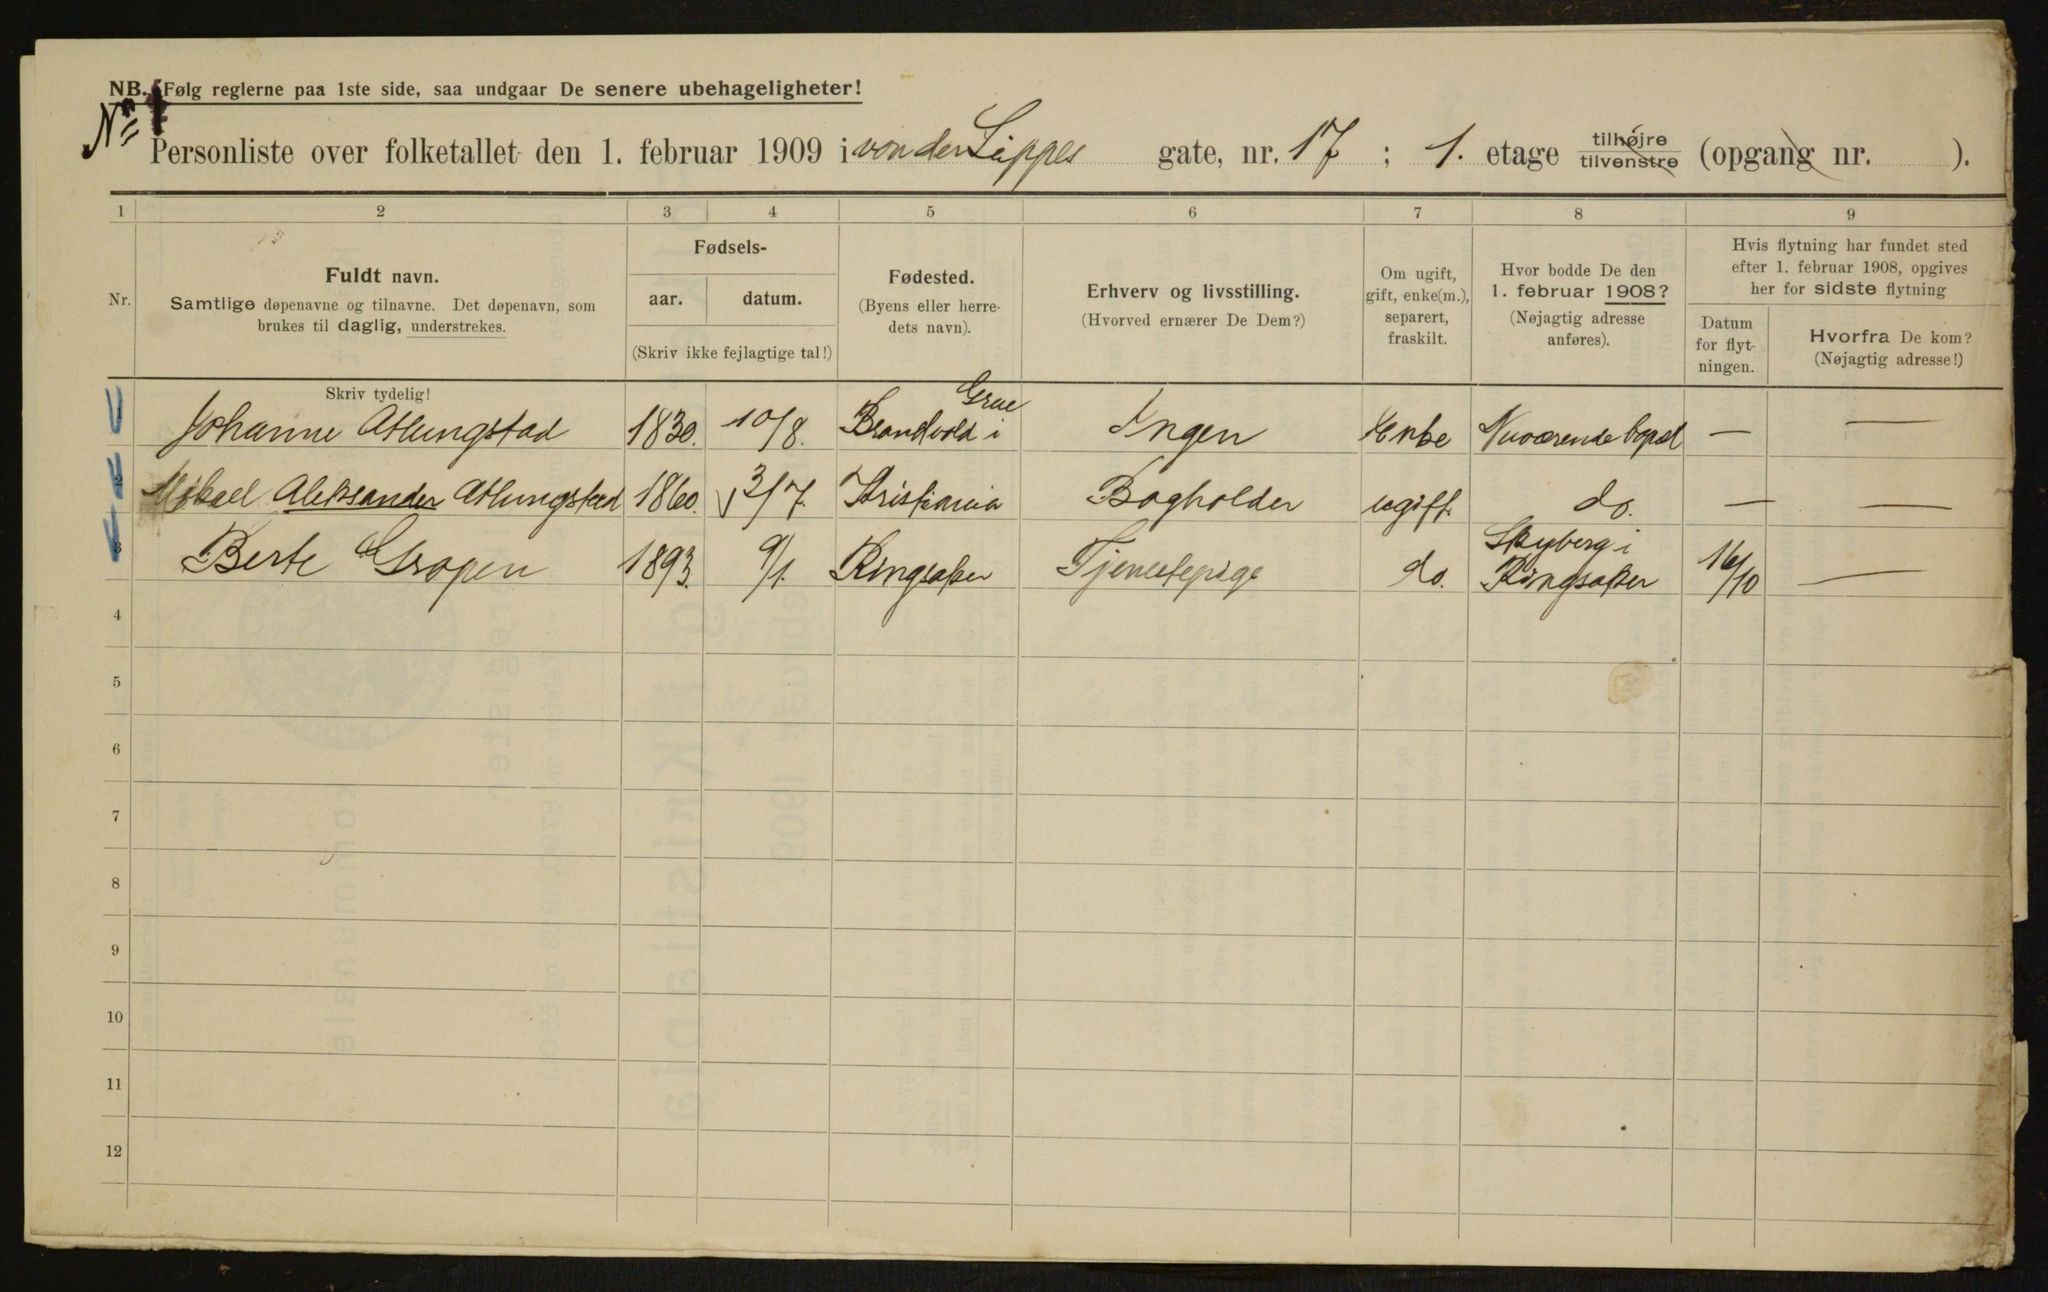 NB. Følg reglerne paa 1ste side, saa undgaar De senere ubehageligheter!
No 1
Personliste over folketallet den 1. februar 1909 i von der Lippes gate, nr. 17 ; 1. etage tilhøjre tilvenstre (opgang nr. ).
1 2 3 4 5 6 7 8 9
Nr.
Fuldt navn.
Samtlige døpenavne og tilnavne. Det døpenavn, som
brukes til daglig, understrekes.
Skriv tydelig!
Fødsels-
aar. datum.
(Skriv ikke fejlagtige tal!)
Fødested.
(Byens eller herre-
dets navn).
Erhverv og livsstilling.
(Hvorved ernærer De Dem?)
Om ugift,
gift, enke(m.),
separert,
fraskilt.
Hvor bodde De den
1. februar 1908?
(Nøjagtig adresse
anføres).
Hvis flytning har fundet sted
efter 1. februar 1908, opgives
her for sidste flytning
Datum
for flyt-
ningen.
Hvorfra De kom?
(Nøjagtig adresse!)
1 Johanne Atlungstad 1830. 10/8. Brandvold i Grue Ingen Enke Nuværende bopæl — —
2 Mikael Aleksander Atlungstad 1860. 3/7. Kristiania Bogholder ugift. do. — —
3 Berte Gropen 1893. 9/1. Ringsaker Tjenestepige do. Skyberg i Ringsaker 16/10 —
4
5
6
7
8
9
10
11
12